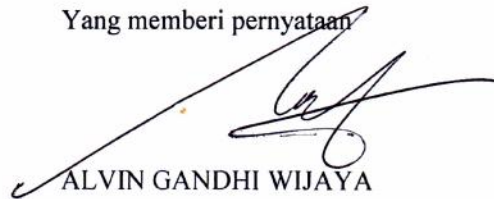 Yang memberi pernyataan
ALVIN GANDHI WIJAYA